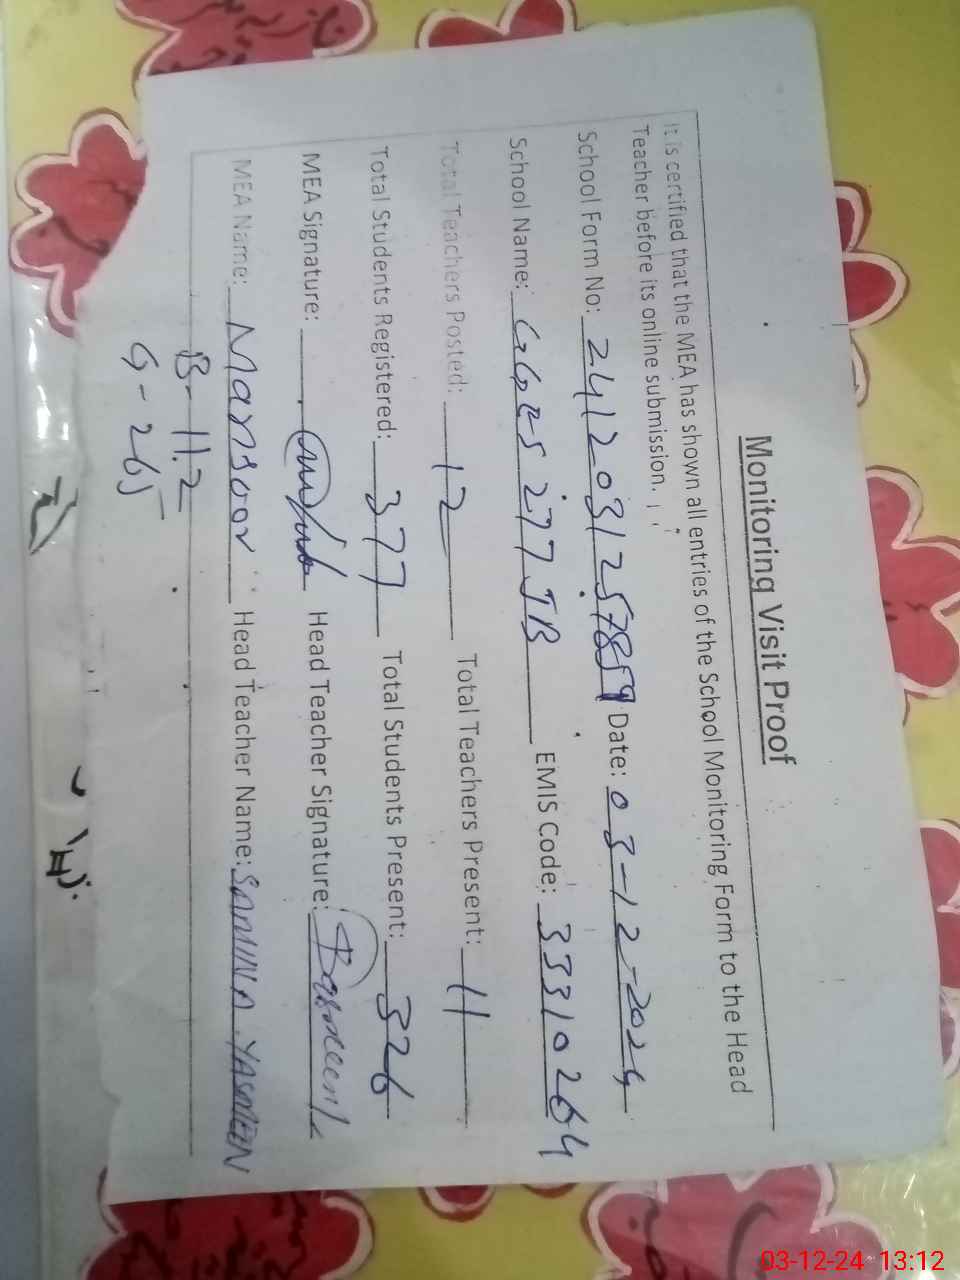 Monitoring Visit Proof
It is certified that the MEA has shown all entries of the School Monitoring Form to the Head
Teacher before its online submission.
School Form No: 2412031257859 Date: 03-12-2024
School Name: GGES 277 JB EMIS Code: 33310264
Total Teachers Posted: 12 Total Teachers Present: 11
Total Students Registered: 377 Total Students Present: 326
MEA Signature: Head Teacher Signature:
MEA Name: Mansoor Head Teacher Name: SAMINA YASMEEN
B- 112
G- 265
03-12-24 13:12